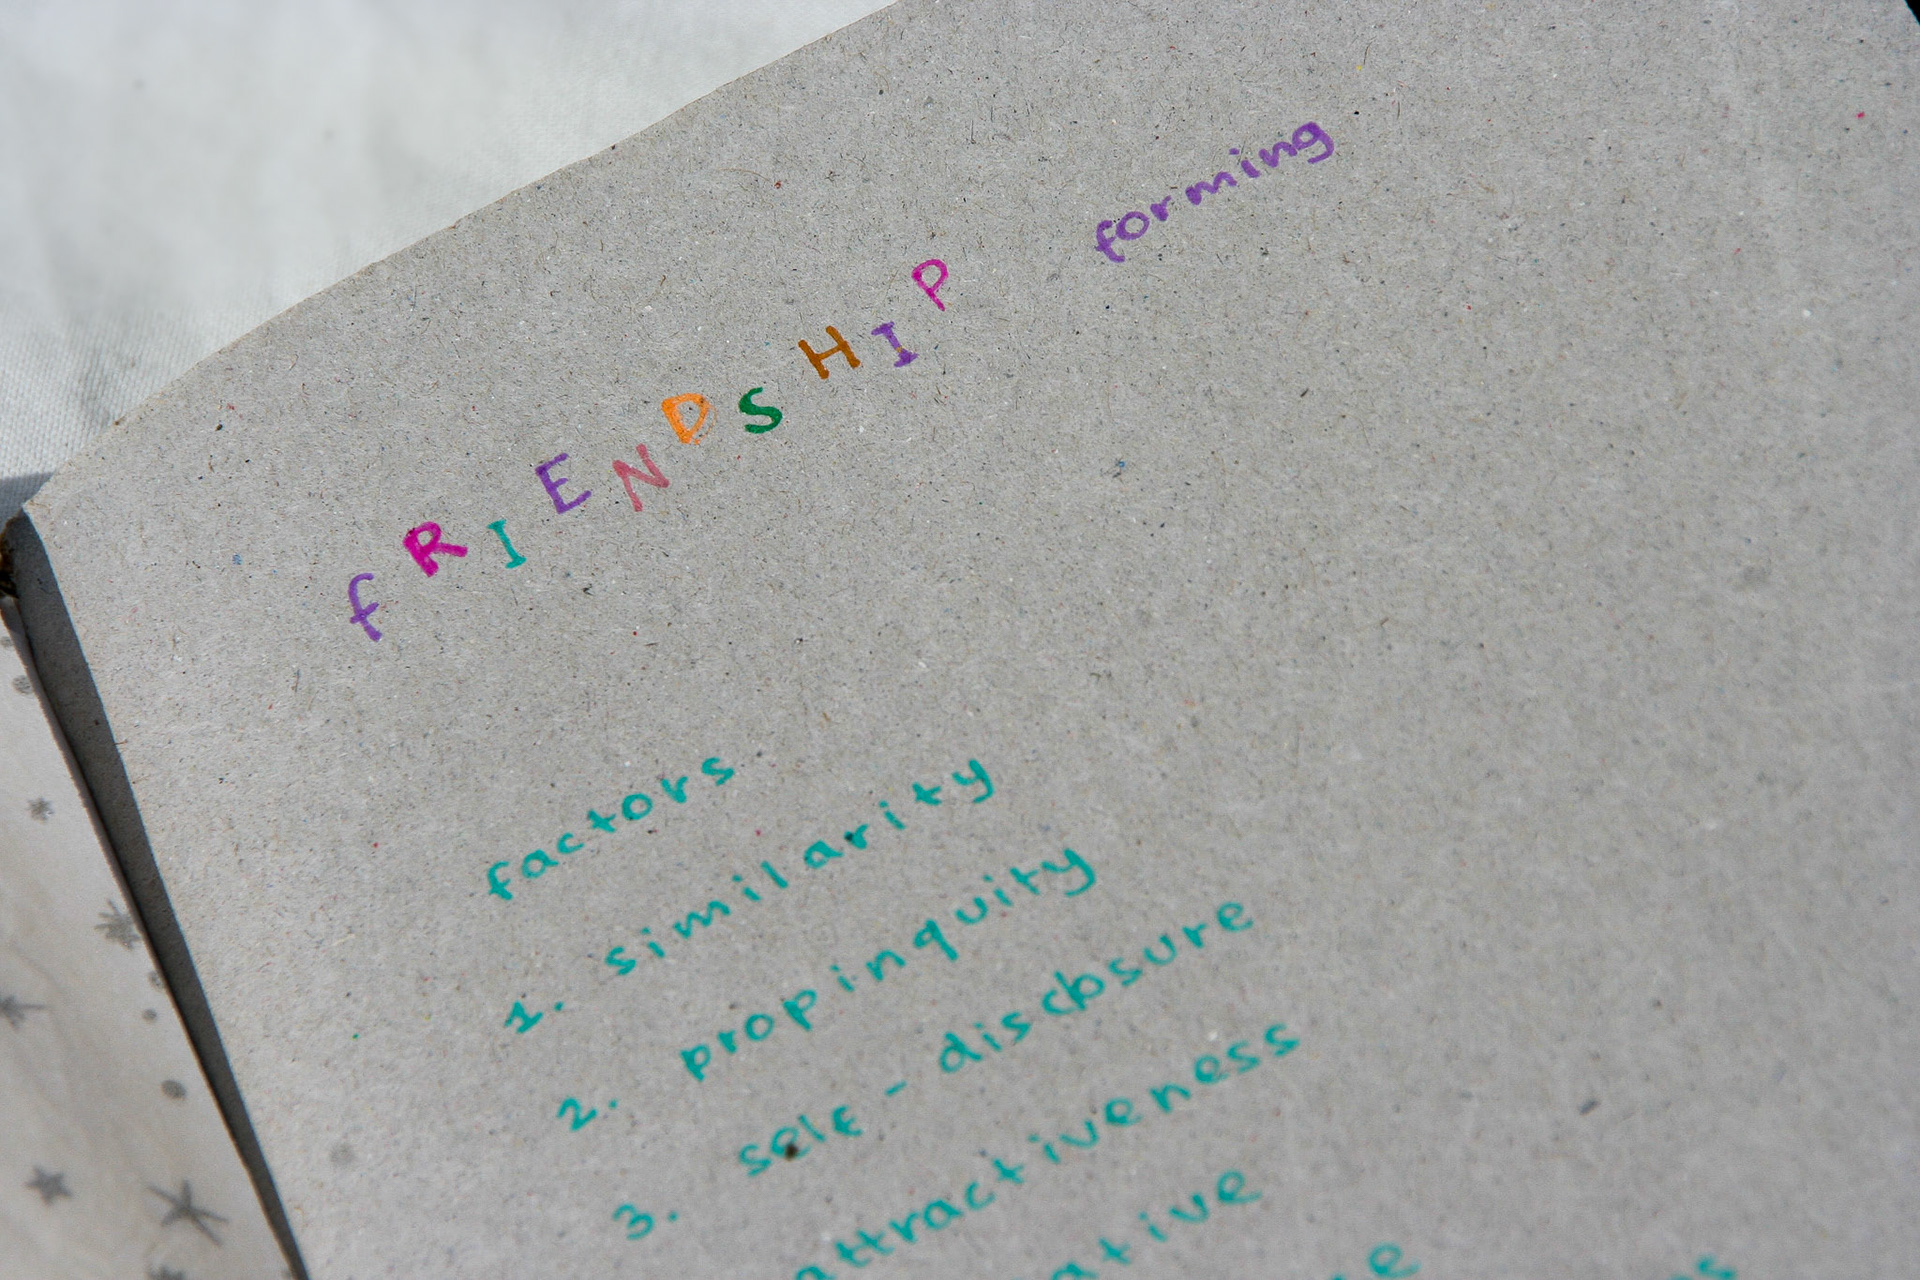 fRIENDSHIP forming
factors
1. similarity
2. propinquity
3. self - disclosure
attractiveness